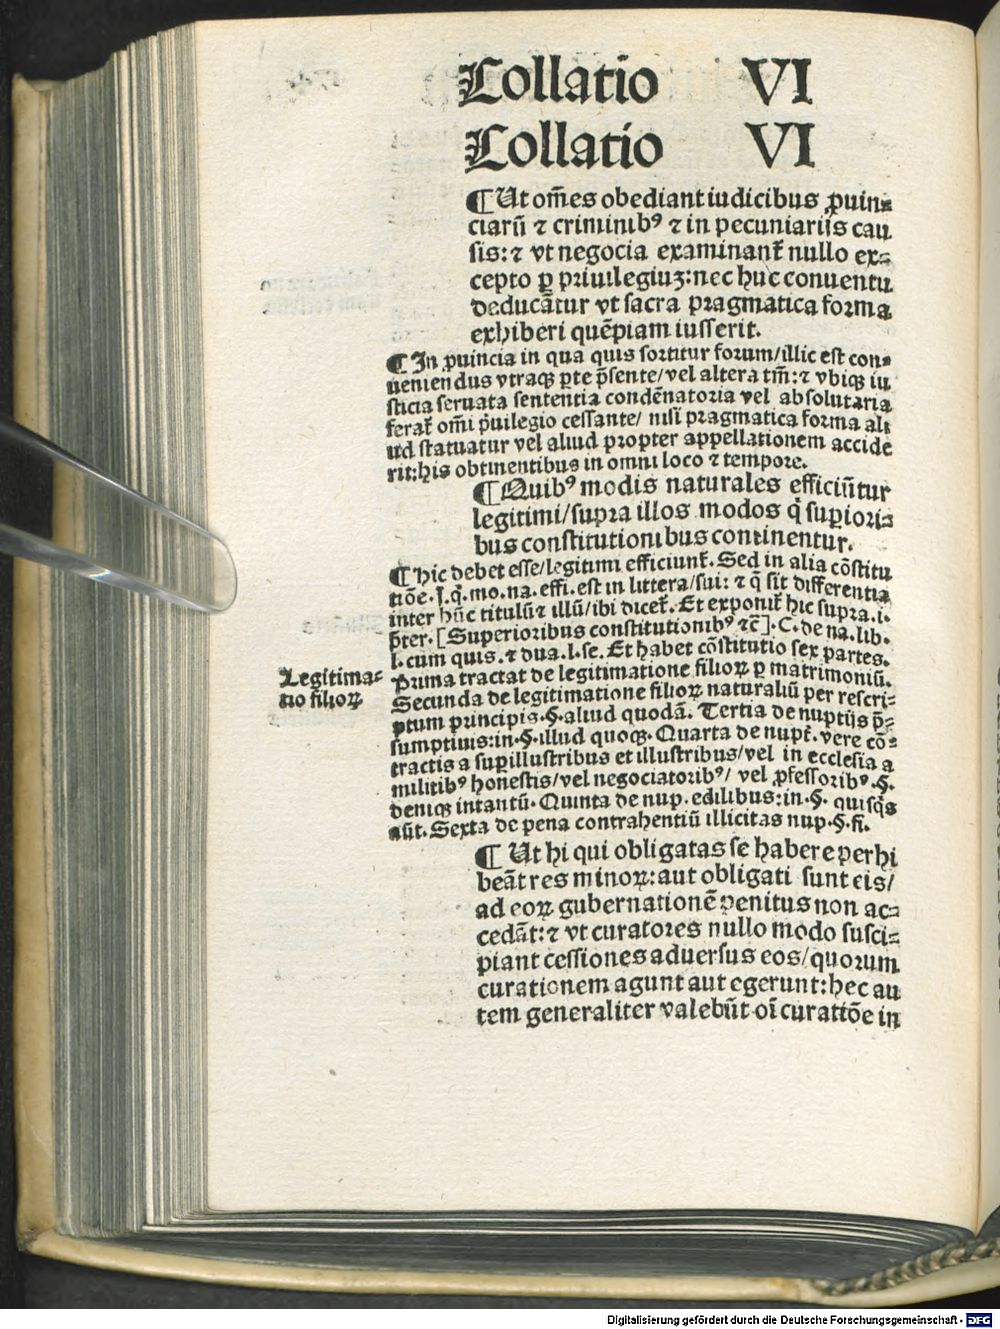 Collatio VI
Collatio VI
¶ Ut om̄es obediant iudicibus ꝓuin⸗
ciarū ⁊ criminibꝰ ⁊ in pecuniarijs cau
sis: ⁊ vt negocia examinant᷑ nullo ex⸗
cepto ꝑ priuilegiuʒ: nec huc conuentu
deducātur vt sacra pragmatica forma
exhiberi quēpiam iusserit.
¶ In ꝓuincia in qua quis sortitur forum/illic est con⸗
ueniendus vtraqꝫ ꝑte p̄sente/vel altera tm̄: ⁊ vbiqꝫ iu
sticia seruata sententia condēnatoria vel absolutaria
ferat᷑ omī p̄uilegio cessante/ nisi pragmatica forma ali
ud statuatur vel aliud propter appellationem accide
rit: his obtinentibus in omni loco ⁊ tempore.
¶ Quibꝰ modis naturales efficiūtur
legitimi/supra illos modos q̄ suꝑiori⸗
bus constitutionibus continentur.
¶ Hic debet esse/legitimi efficiunt᷑. Sed in alia cōstitu
tiōe. s. q̄. mo. na. effi. est in littera/sui: ⁊ q̄ sit differentia
inter hūc titulū ⁊ illū/ibi dicet᷑. Et exponit᷑ hic supra. i.
p̄ter. [Superioribus constitutionibꝰ ⁊c̄]. C. de na. lib.
l. cum quis. ⁊ dua. l. se. Et habet cōstitutio sex partes.
Prima tractat de legitimatione filioꝝ ꝑ matrimoniū.
Secunda de legitimatione filioꝝ naturaliū per rescri⸗
ptum principis. §. aliud quodā. Tertia de nuptijs p̄⸗
sumptiuis: in. §. illud quoqꝫ. Quarta de nupt᷑. vere cō⸗
tractis a suꝑillustribus et illustribus/vel in ecclesia a
militibꝰ honestis/vel negociatoribꝰ/ vel ꝓfessoribꝰ. §.
deniqꝫ intantū. Quinta de nup. edilibus: in. §. quisq̄s
aūt. Sexta de pena contrahentiū illicitas nup. §. fi.
Legitima⸗
tio filioꝝ
¶ Ut hi qui obligatas se habere perhi
beāt res minoꝝ: aut obligati sunt eis/
ad eoꝝ gubernationē penitus non ac⸗
cedāt: ⁊ vt curatores nullo modo susci⸗
piant cessiones aduersus eos/quorum
curationem agunt aut egerunt: hec au
tem generaliter valebūt oī curatiōe in
Digitalisierung gefördert durch die Deutsche Forschungsgemeinschaft - DFG